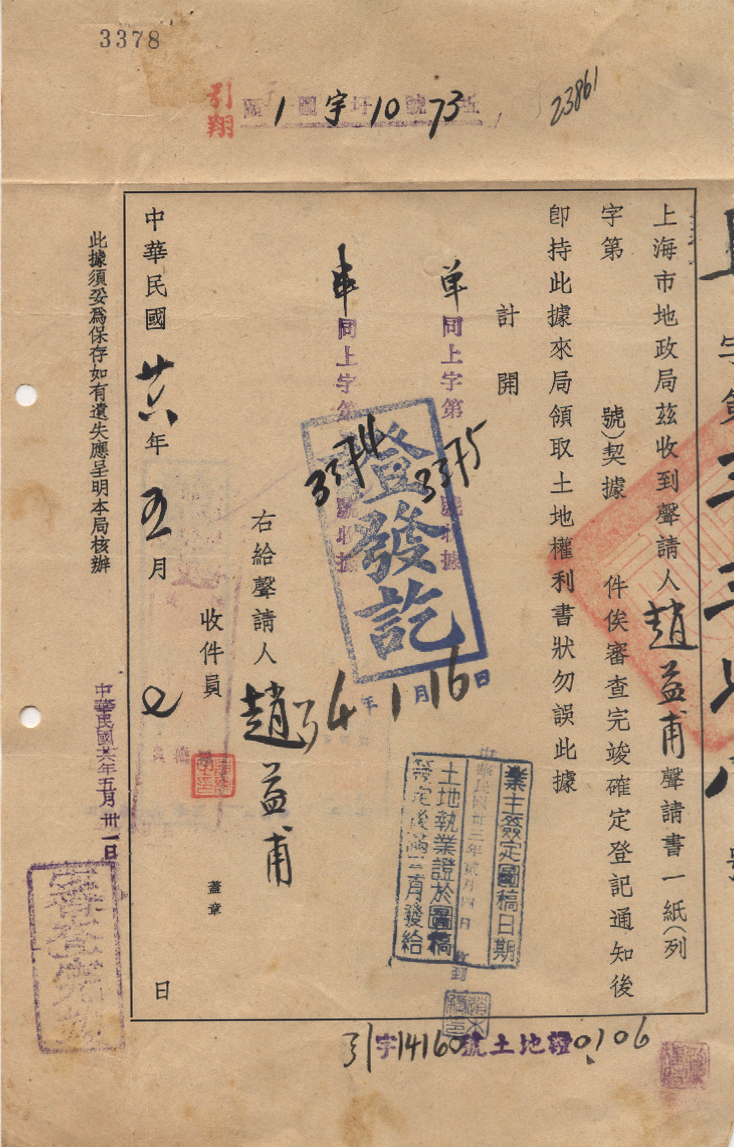 3378
引翔
區 1 圖 字 圩 10 號 73 丘
23861
字第三三七八號
上海市地政局茲收到聲請人趙益甫聲請書一紙(列
字第 號)契據 件俟審查完竣確定登記通知後
卽持此據來局領取土地權利書狀勿誤此據
計開
單同上字第3375號收據
單同上字第3374號收據
證發訖
34年1月16日
右給聲請人趙益甫
收件員
蓋章
中華民國廿六年五月 日
此據須妥爲保存如有遺失應呈明本局核辦
中華民國廿六年五月卅一日
業主簽定圖稿日期
中華民國卅三年貳月四日收到
土地執業證於圖稿
簽定後滿三月發給
引字14160號土地證0106